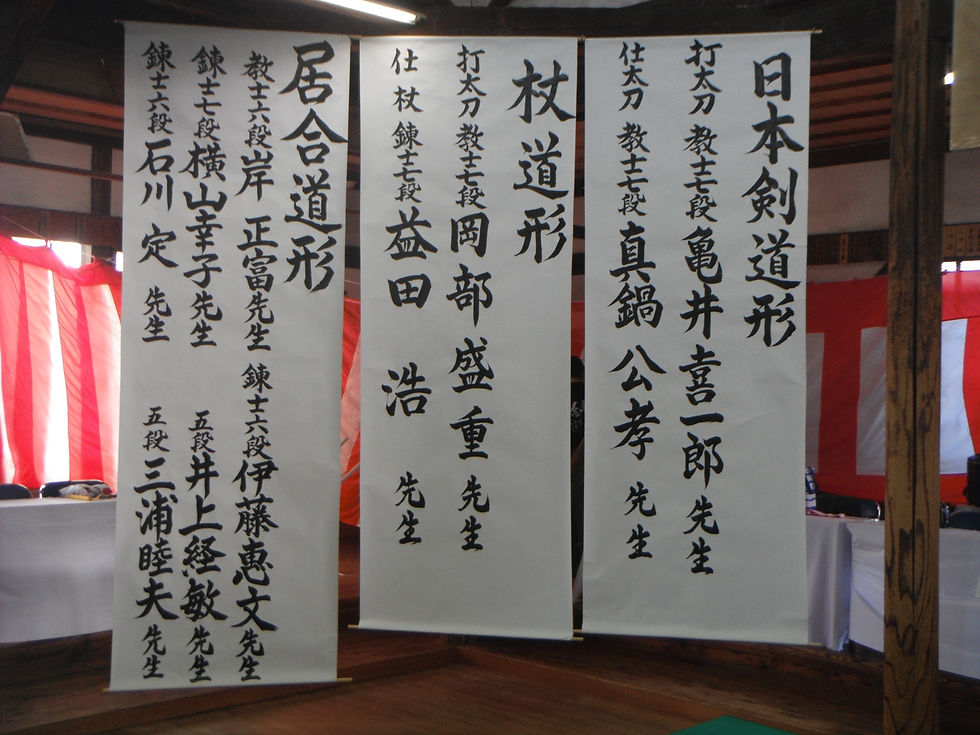 日本剣道形
打太刀 教士七段 亀井喜一郎 先生
仕太刀 教士七段 真鍋 公孝 先生
杖道形
打太刀 教士七段 岡部 盛重 先生
仕杖 錬士七段 益田 浩 先生
居合道形
教士六段 岸 正富 先生 錬士六段 伊藤恵文 先生
錬士七段 横山幸子 先生 五段 井上経敏 先生
錬士六段 石川 定 先生 五段 三浦睦夫 先生